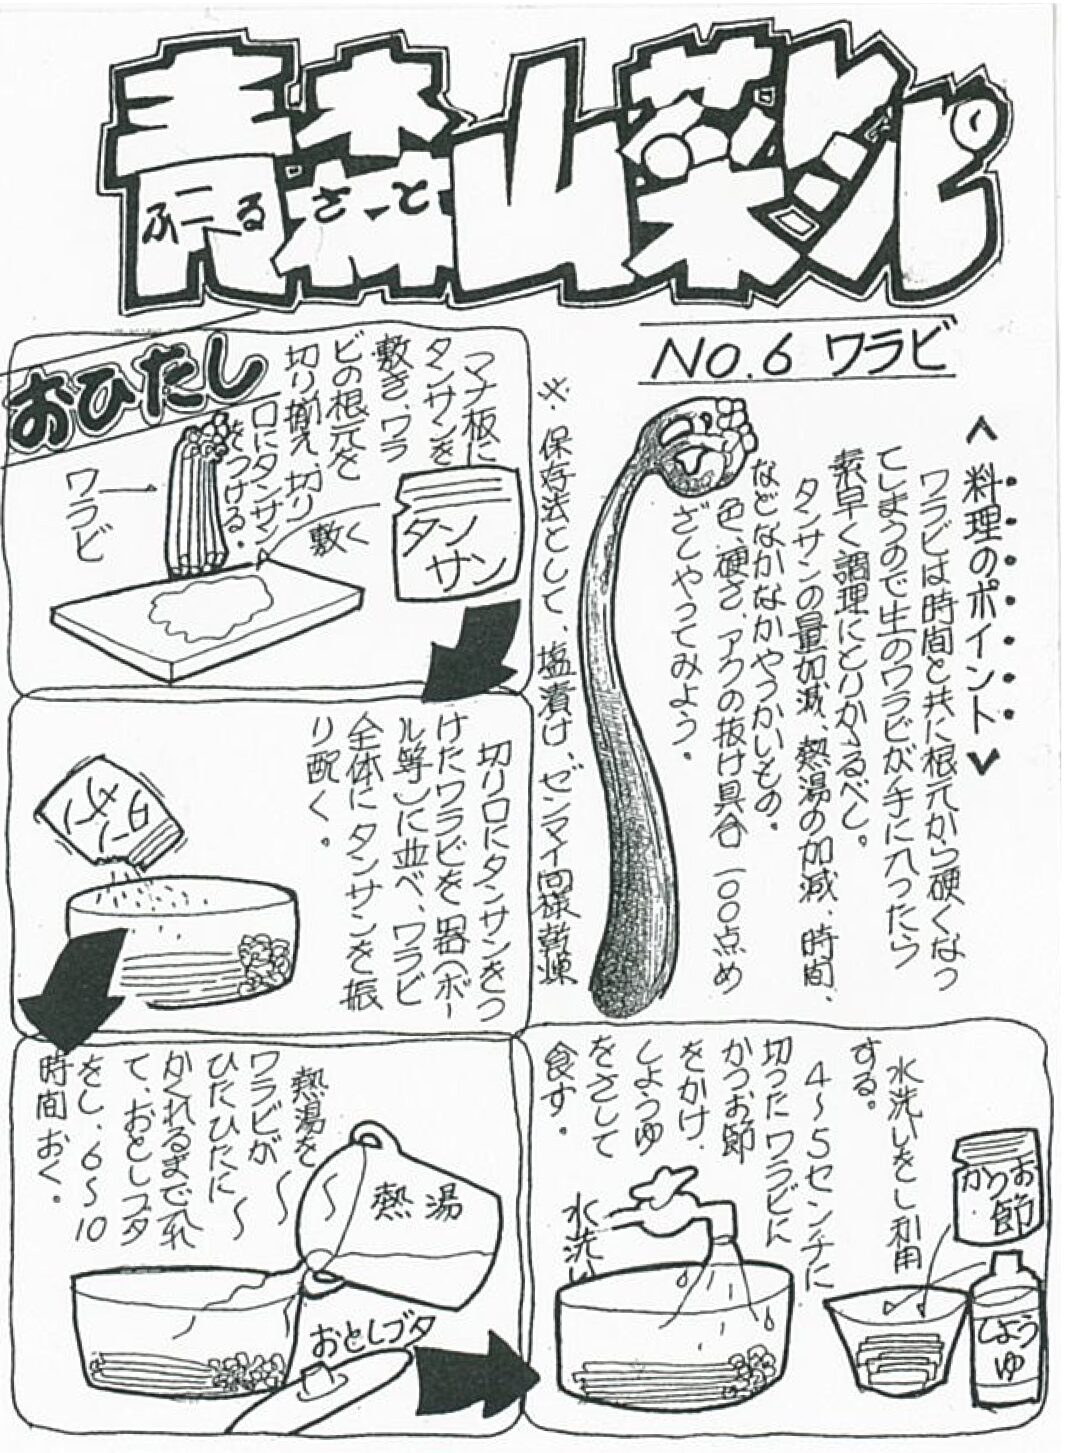 青森山菜レシピ
ふーるさーと
NO.6 ワラビ
<料理のポイント>
ワラビは時間と共に根元から硬くなっ
てしまうので生のワラビが手に入ったら
素早く調理にとりかゝるべし。
タンサンの量加減、熱湯の加減、時間、
などなかなかやっかいもの。
色、硬さ、アクの抜け具合一〇〇点め
ざしやってみよう。
※.保存法として、塩漬け、ゼンマイ同様乾燥
おひたし
マナ板に
タンサンを
敷き、ワラ
ビの根元を
切り揃え、切り
口にタンサン
をつける。
ワラビ
敷く
タン
サン
切り口にタンサンをつ
けたワラビを器(ボー
ル等)に並べ、ワラビ
全体にタンサンを振
り配く。
タンサン
熱湯を
ワラビが
ひたひたに
かくれるまで入れ
て、おとしブタ
をし、6〜10
時間おく。
熱湯
おとしブタ
水洗いをし利用
する。
4〜5センチに
切ったワラビに
かつお節
をかけ、
しょうゆ
をさして
食す。
水洗い
かつお
節
しょう
ゆ